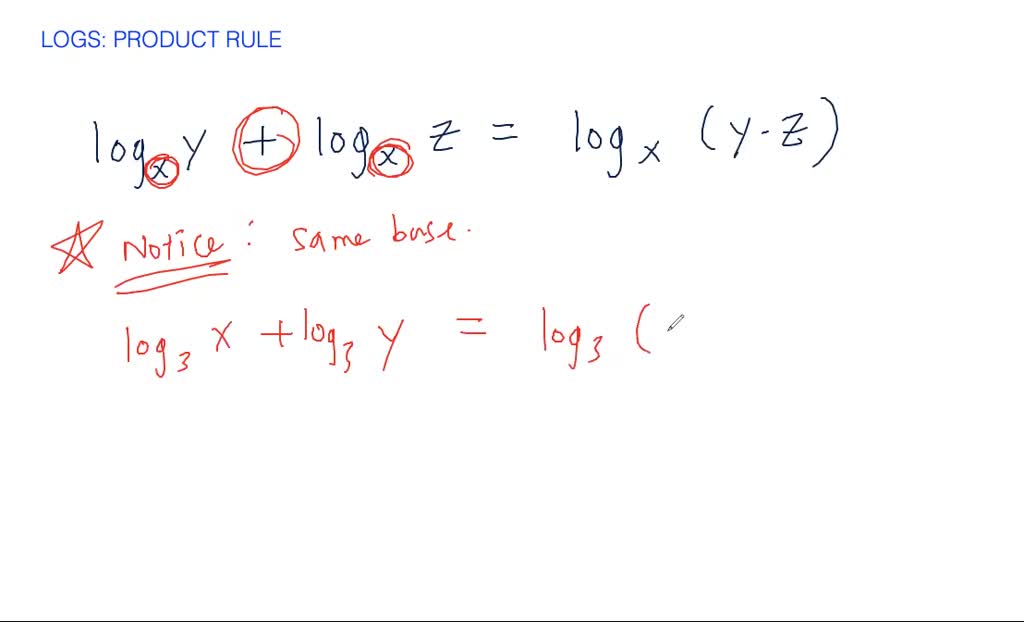 LOGS: PRODUCT RULE
logₓ y + logₓ z = logₓ (y · z)
☆ Notice: same base.
log₃ x + log₃ y = log₃ (